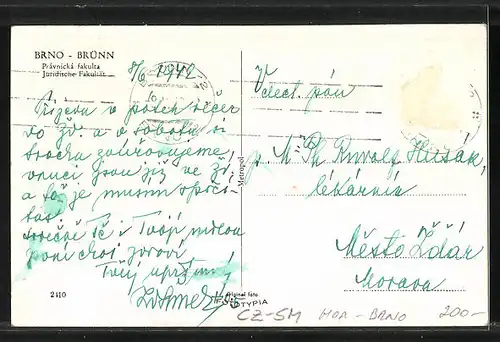 BRNO - BRÜNN
Právnická fakulta
Juridische Fakultät
8/6 1942
Přijedu v pátek večer
do Žď. a v sobotu si
trochu zaúřadujeme,
vnuci jsou již ve Žď.
a
je musím
Srdečně Tě i Tvoji milou
paní
zdraví
Tvůj upřímný
2110
Metropol
Original foto
FOTOTYPIA
Velect. pán
p. M. Ph. Rudolf Husák,
lékárník
Město Žďár
Morava
CZ-SM MOR - BRNO 200.-